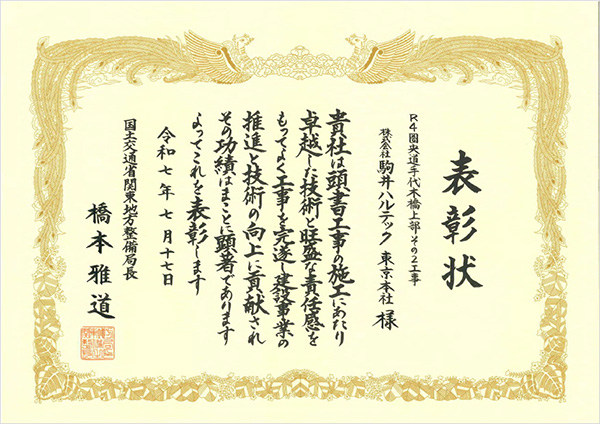 表彰状
R4圏央道手代木橋上部その2工事
株式会社 駒井ハルテック 東京本社 様
貴社は頭書工事の施工にあたり
卓越した技術と旺盛な責任感を
もってよく工事を完遂し建設事業の
推進と技術の向上に貢献され
その功績はまことに顕著であります
よってこれを表彰します
令和七年七月十七日
国土交通省関東地方整備局長
橋本雅道